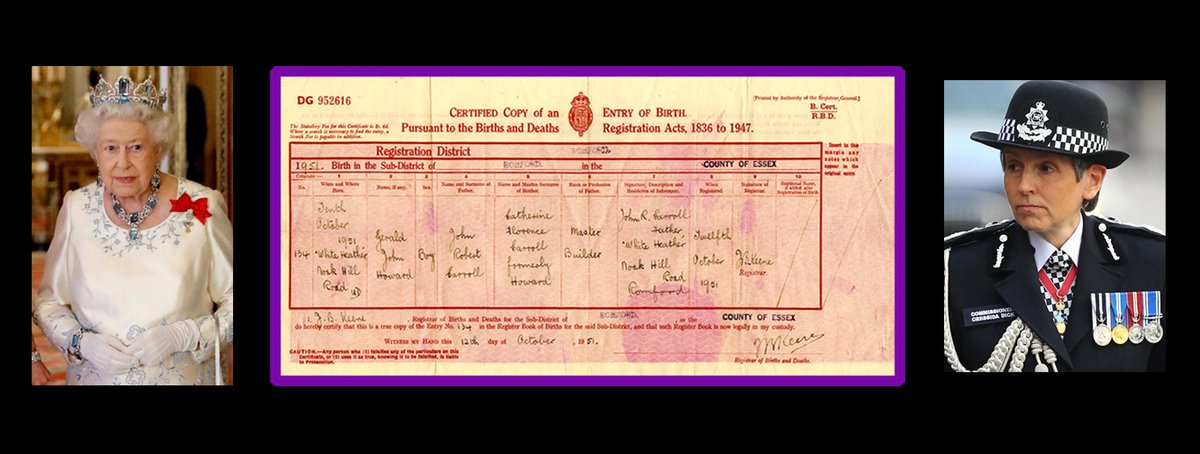 DG 952616
[Printed by Authority of the Registrar General.]
CERTIFIED COPY of an ENTRY OF BIRTH.
B. Cert.
R.B.D.
The Statutory Fee for this Certificate is 2s. 6d.
Where a search is necessary to find the entry, a
Search Fee is payable in addition.
Pursuant to the Births and Deaths Registration Acts, 1836 to 1947.
Registration District ROMFORD
Insert in this
margin any
notes which
appear in the
original entry.
1951. Birth in the Sub-District of ROMFORD in the COUNTY OF ESSEX
Columns:— 1 2 3 4 5 6 7 8 9 10
No. When and Where Born. Name, if any. Sex. Name and Surname of Father. Name and Maiden Surname of Mother. Rank or Profession of Father. Signature, Description and Residence of Informant. When Registered. Signature of Registrar. Baptismal Name, if added after Registration of Birth.
134 Tenth October 1951 "White Heather" Noak Hill Road UD
Gerald John Howard
Boy
John Robert Carroll
Catherine Florence Carroll formerly Howard
Master Builder
John R. Carroll Father "White Heather" Noak Hill Road Romford
Twelfth October 1951
Keene Registrar.
I, J.B. Keene, Registrar of Births and Deaths for the Sub-District of ROMFORD, in the COUNTY OF ESSEX
do hereby certify that this is a true copy of the Entry No. 134 in the Register Book of Births for the said Sub-District, and that such Register Book is now legally in my custody.
WITNESS MY HAND this 12th day of October, 1951.
CAUTION.—Any person who (1) falsifies any of the particulars on this
Certificate, or (2) uses it as true, knowing it to be falsified, is liable
to Prosecution.
Keene
Registrar of Births and Deaths.
COMMISSIONER
CRESSIDA DICK